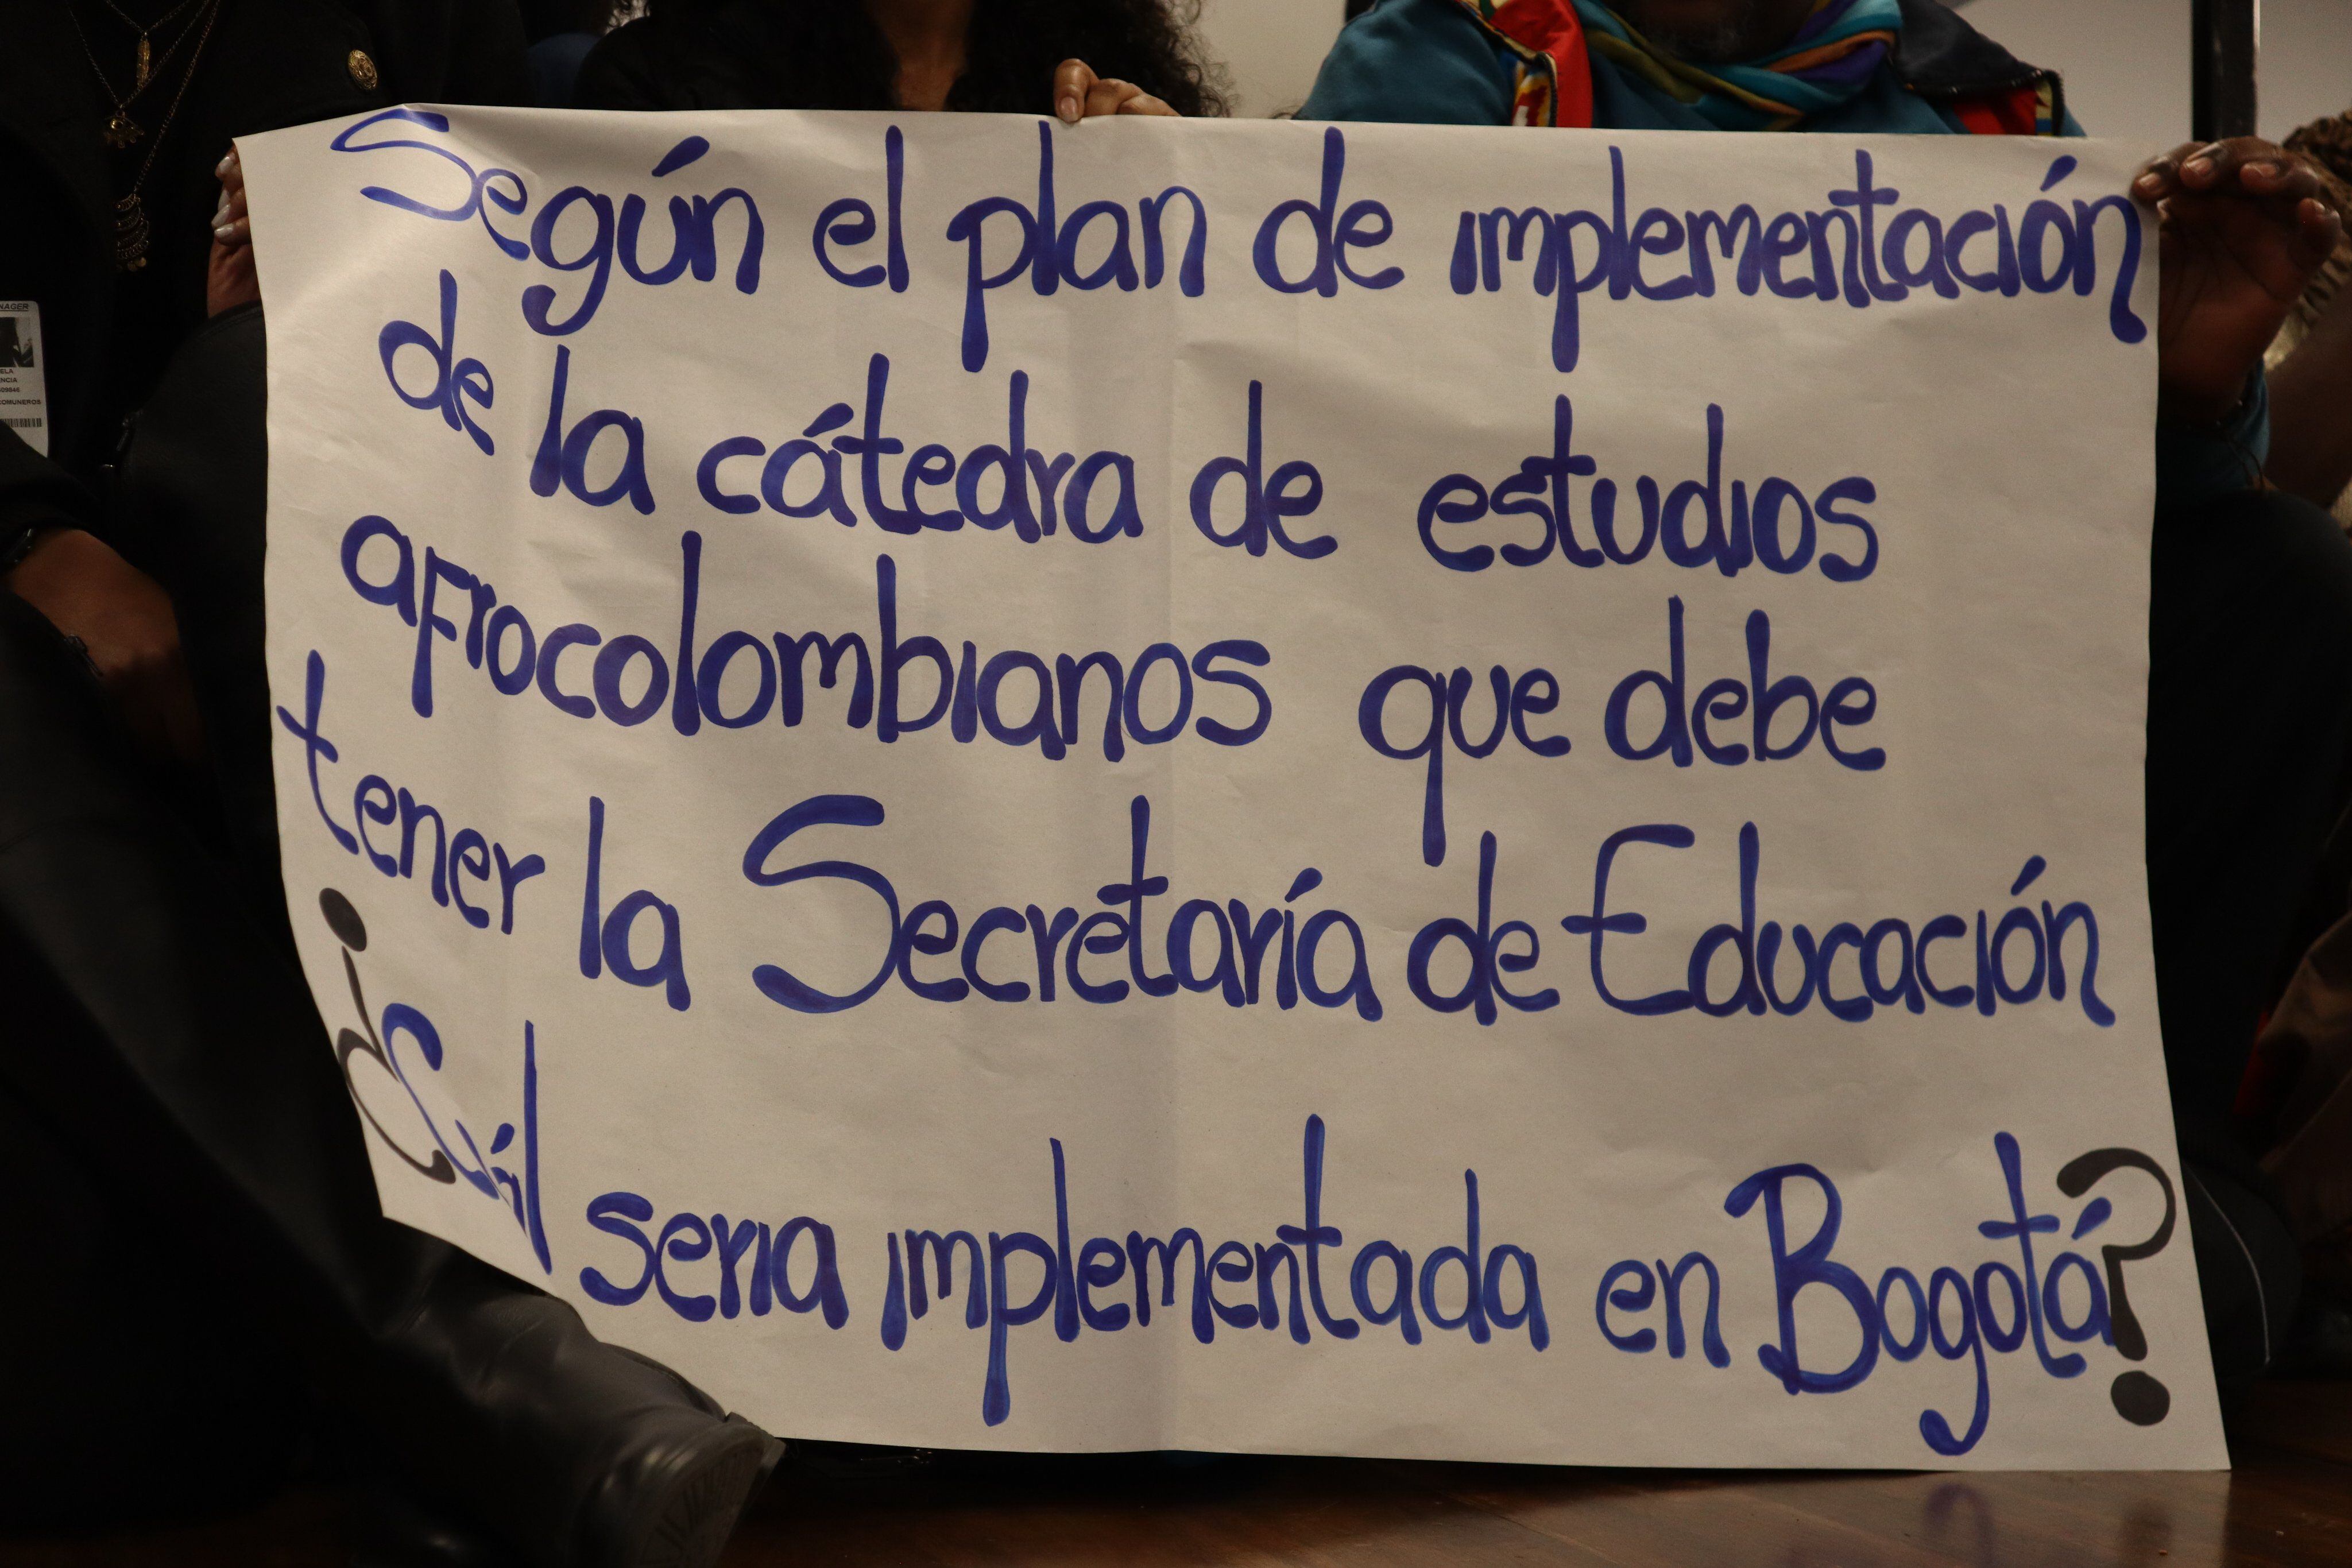 Según el plan de implementación
de la cátedra de estudios
afrocolombianos que debe
tener la Secretaría de Educación
¿Cuál seria implementada en Bogotá?
NAGER
ELA
NCIA
COMUNEROS